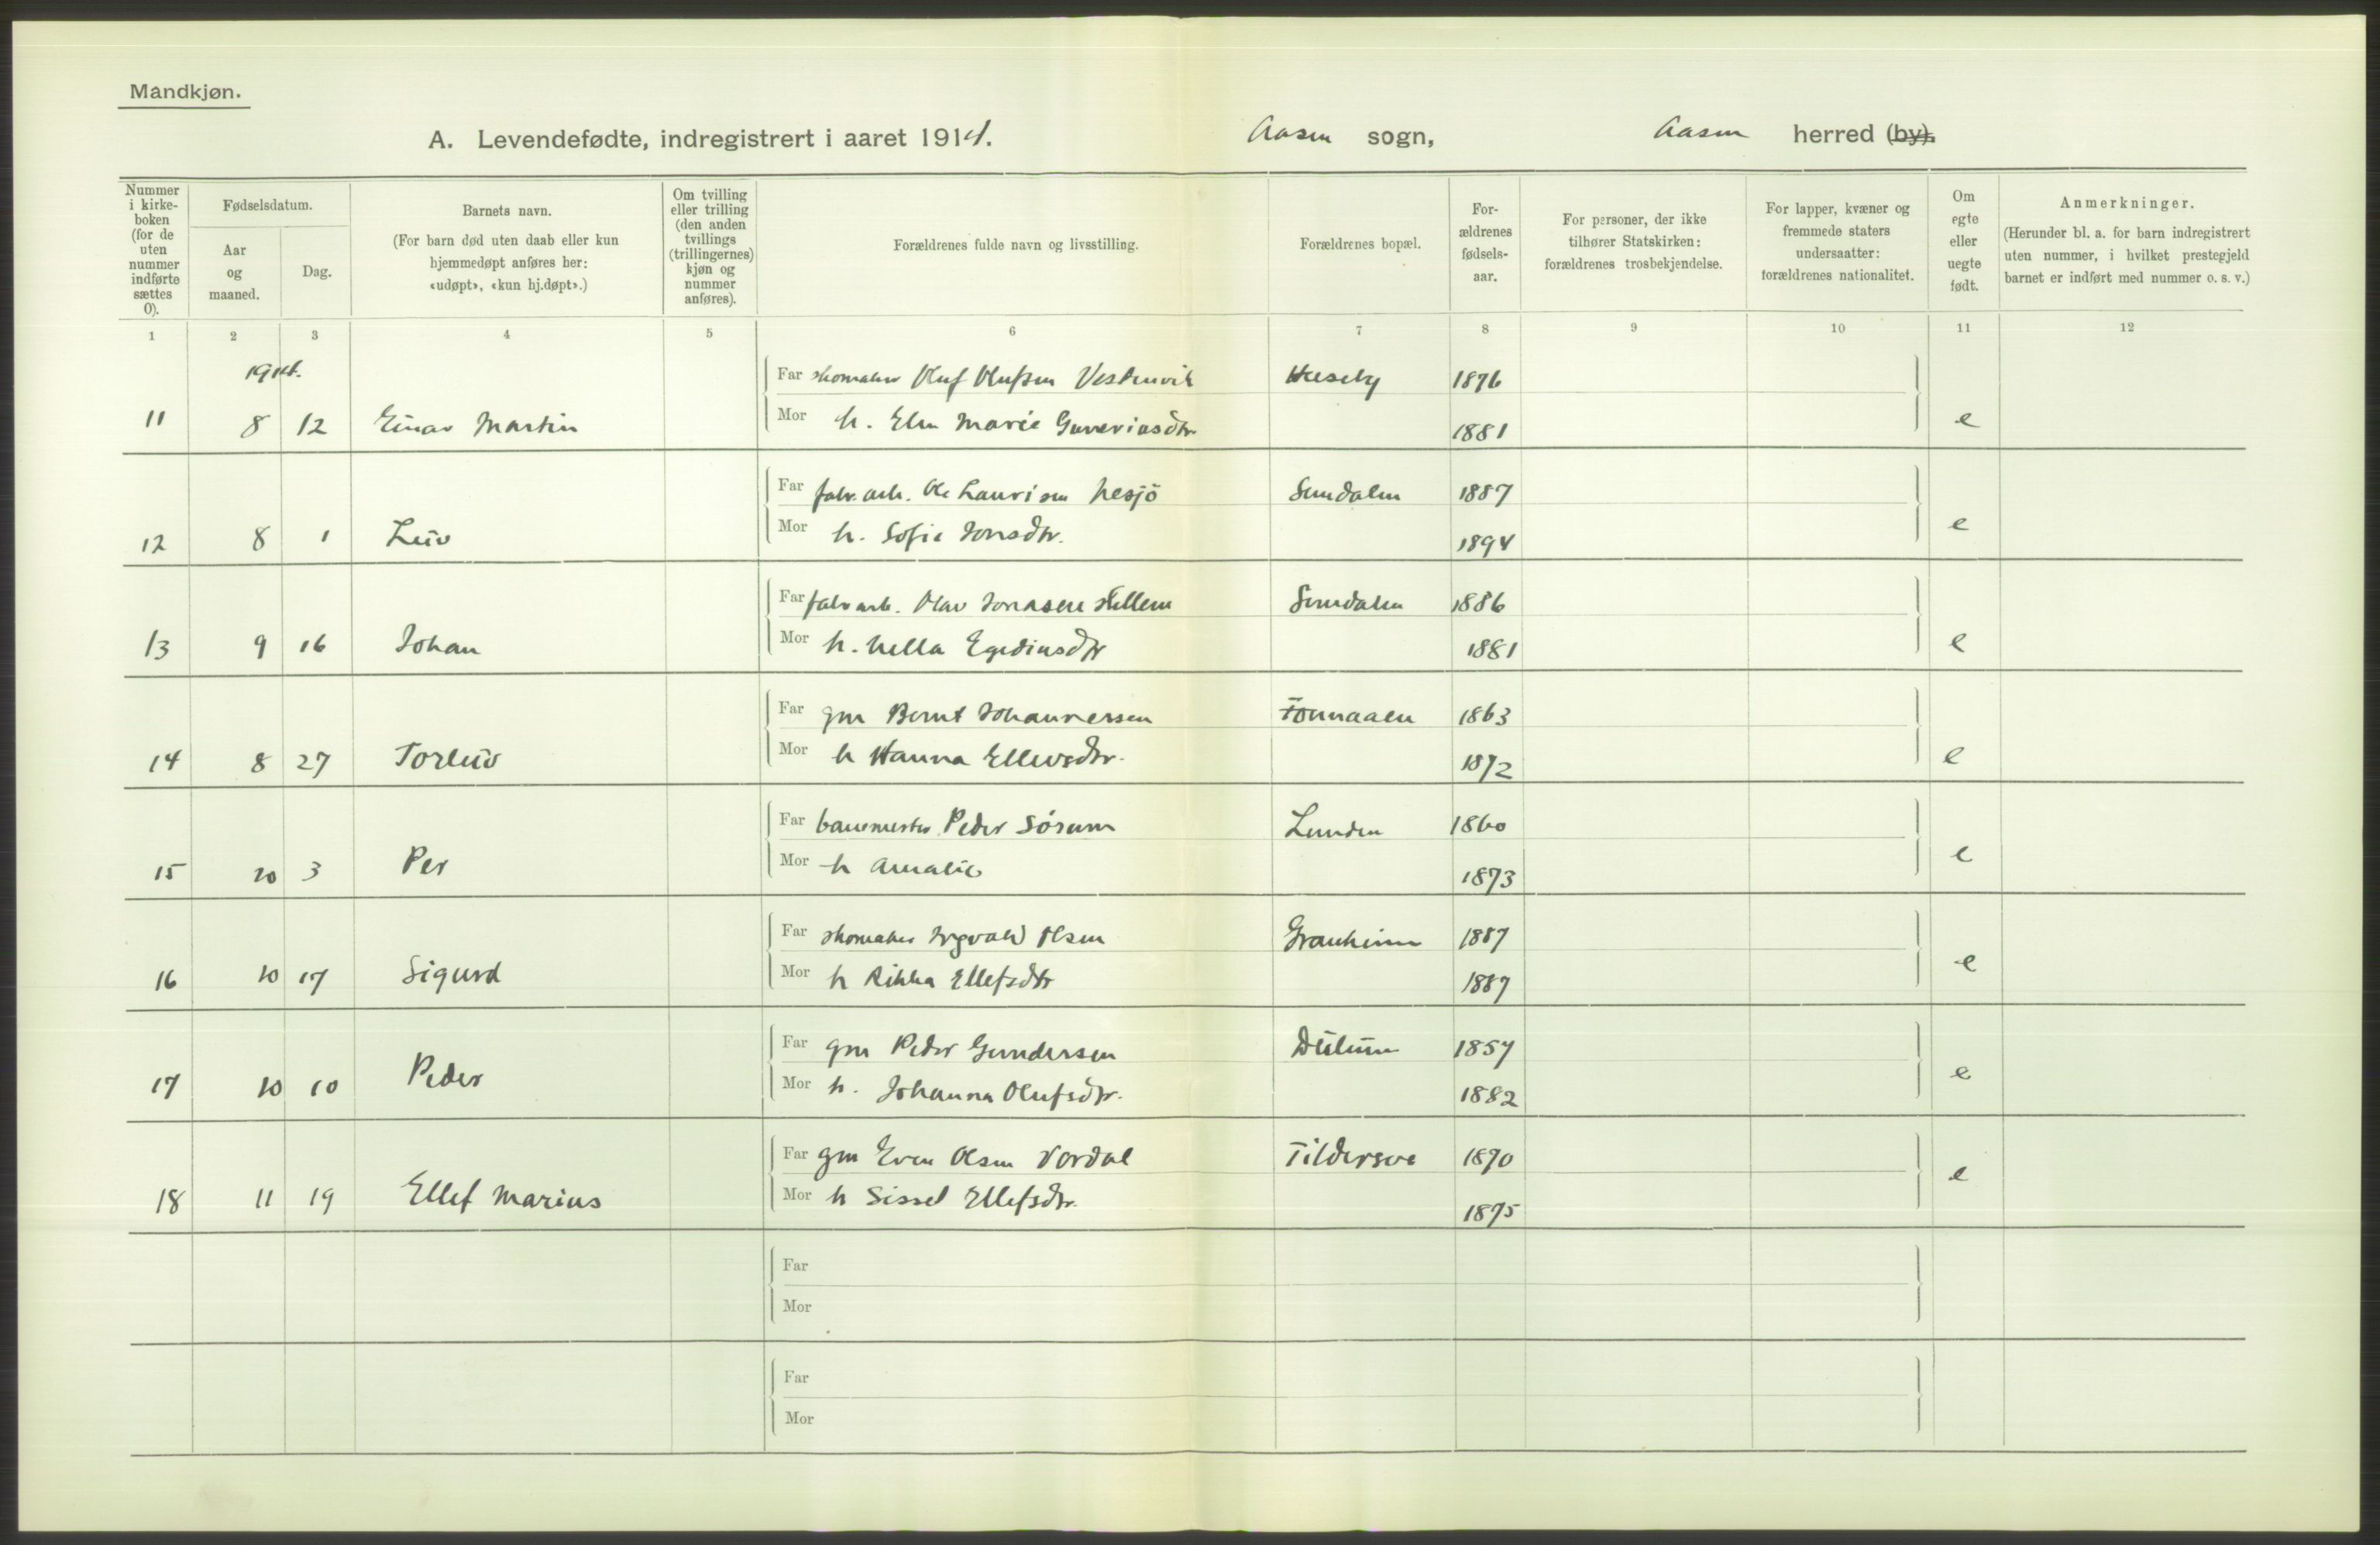 Mandkjøn.
A. Levendefødte, indregistrert i aaret 1914. Aasen sogn, Aasen herred (by).
Nummer i kirkeboken (for de uten nummer indførte sættes 0).
Fødselsdatum.
Aar og maaned.
Dag.
Barnets navn.
(For barn død uten daab eller kun hjemmedøpt anføres her: «udøpt», «kun hj.døpt».)
Om tvilling eller trilling (den anden tvillings (trillingernes) kjøn og nummer anføres).
Forældrenes fulde navn og livsstilling.
Forældrenes bopæl.
Forældrenes fødselsaar.
For personer, der ikke tilhører Statskirken: forældrenes trosbekjendelse.
For lapper, kvæner og fremmede staters undersaatter: forældrenes nationalitet.
Om egte eller uegte født.
Anmerkninger.
(Herunder bl. a. for barn indregistrert uten nummer, i hvilket prestegjeld barnet er indført med nummer o. s. v.)
1 2 3 4 5 6 7 8 9 10 11 12
1914.
Far skomaker Oluf Olufsen Vestervik Huseby 1876
11 8 12 Einar Martin Mor h. Elen Marie 1881 e
Far fabr. arb. Ole Laurisen Nesjö Sundalen 1887
12 8 1 Leiv Mor h. Sofie Jonsdtr. 1894 e
Far fabr arb. Olav Jonasen Hellem Sundalen 1886
13 9 16 Johan Mor h. Nella Egediusdtr 1881 e
Far gm Bernt Johannessen 1863
14 8 27 Torleiv Mor h Hanna Ellevsdtr. 1872 e
Far banemester Peder Sörum Lunden 1860
15 10 3 Per Mor h Amalie 1873 e
Far skomaker Ingvald Olsen Granheim 1887
16 10 17 Sigurd Mor h Rikka Ellefsdtr 1887 e
Far gm Peder Gundersen Dullum 1857
17 10 10 Peder Mor h. Johanna Olufsdtr. 1882 e
Far gm Even Olsen Vordal 1870
18 11 19 Ellef Marius Mor h Sissel Ellefsdtr. 1875 e
Far
Mor
Far
Mor